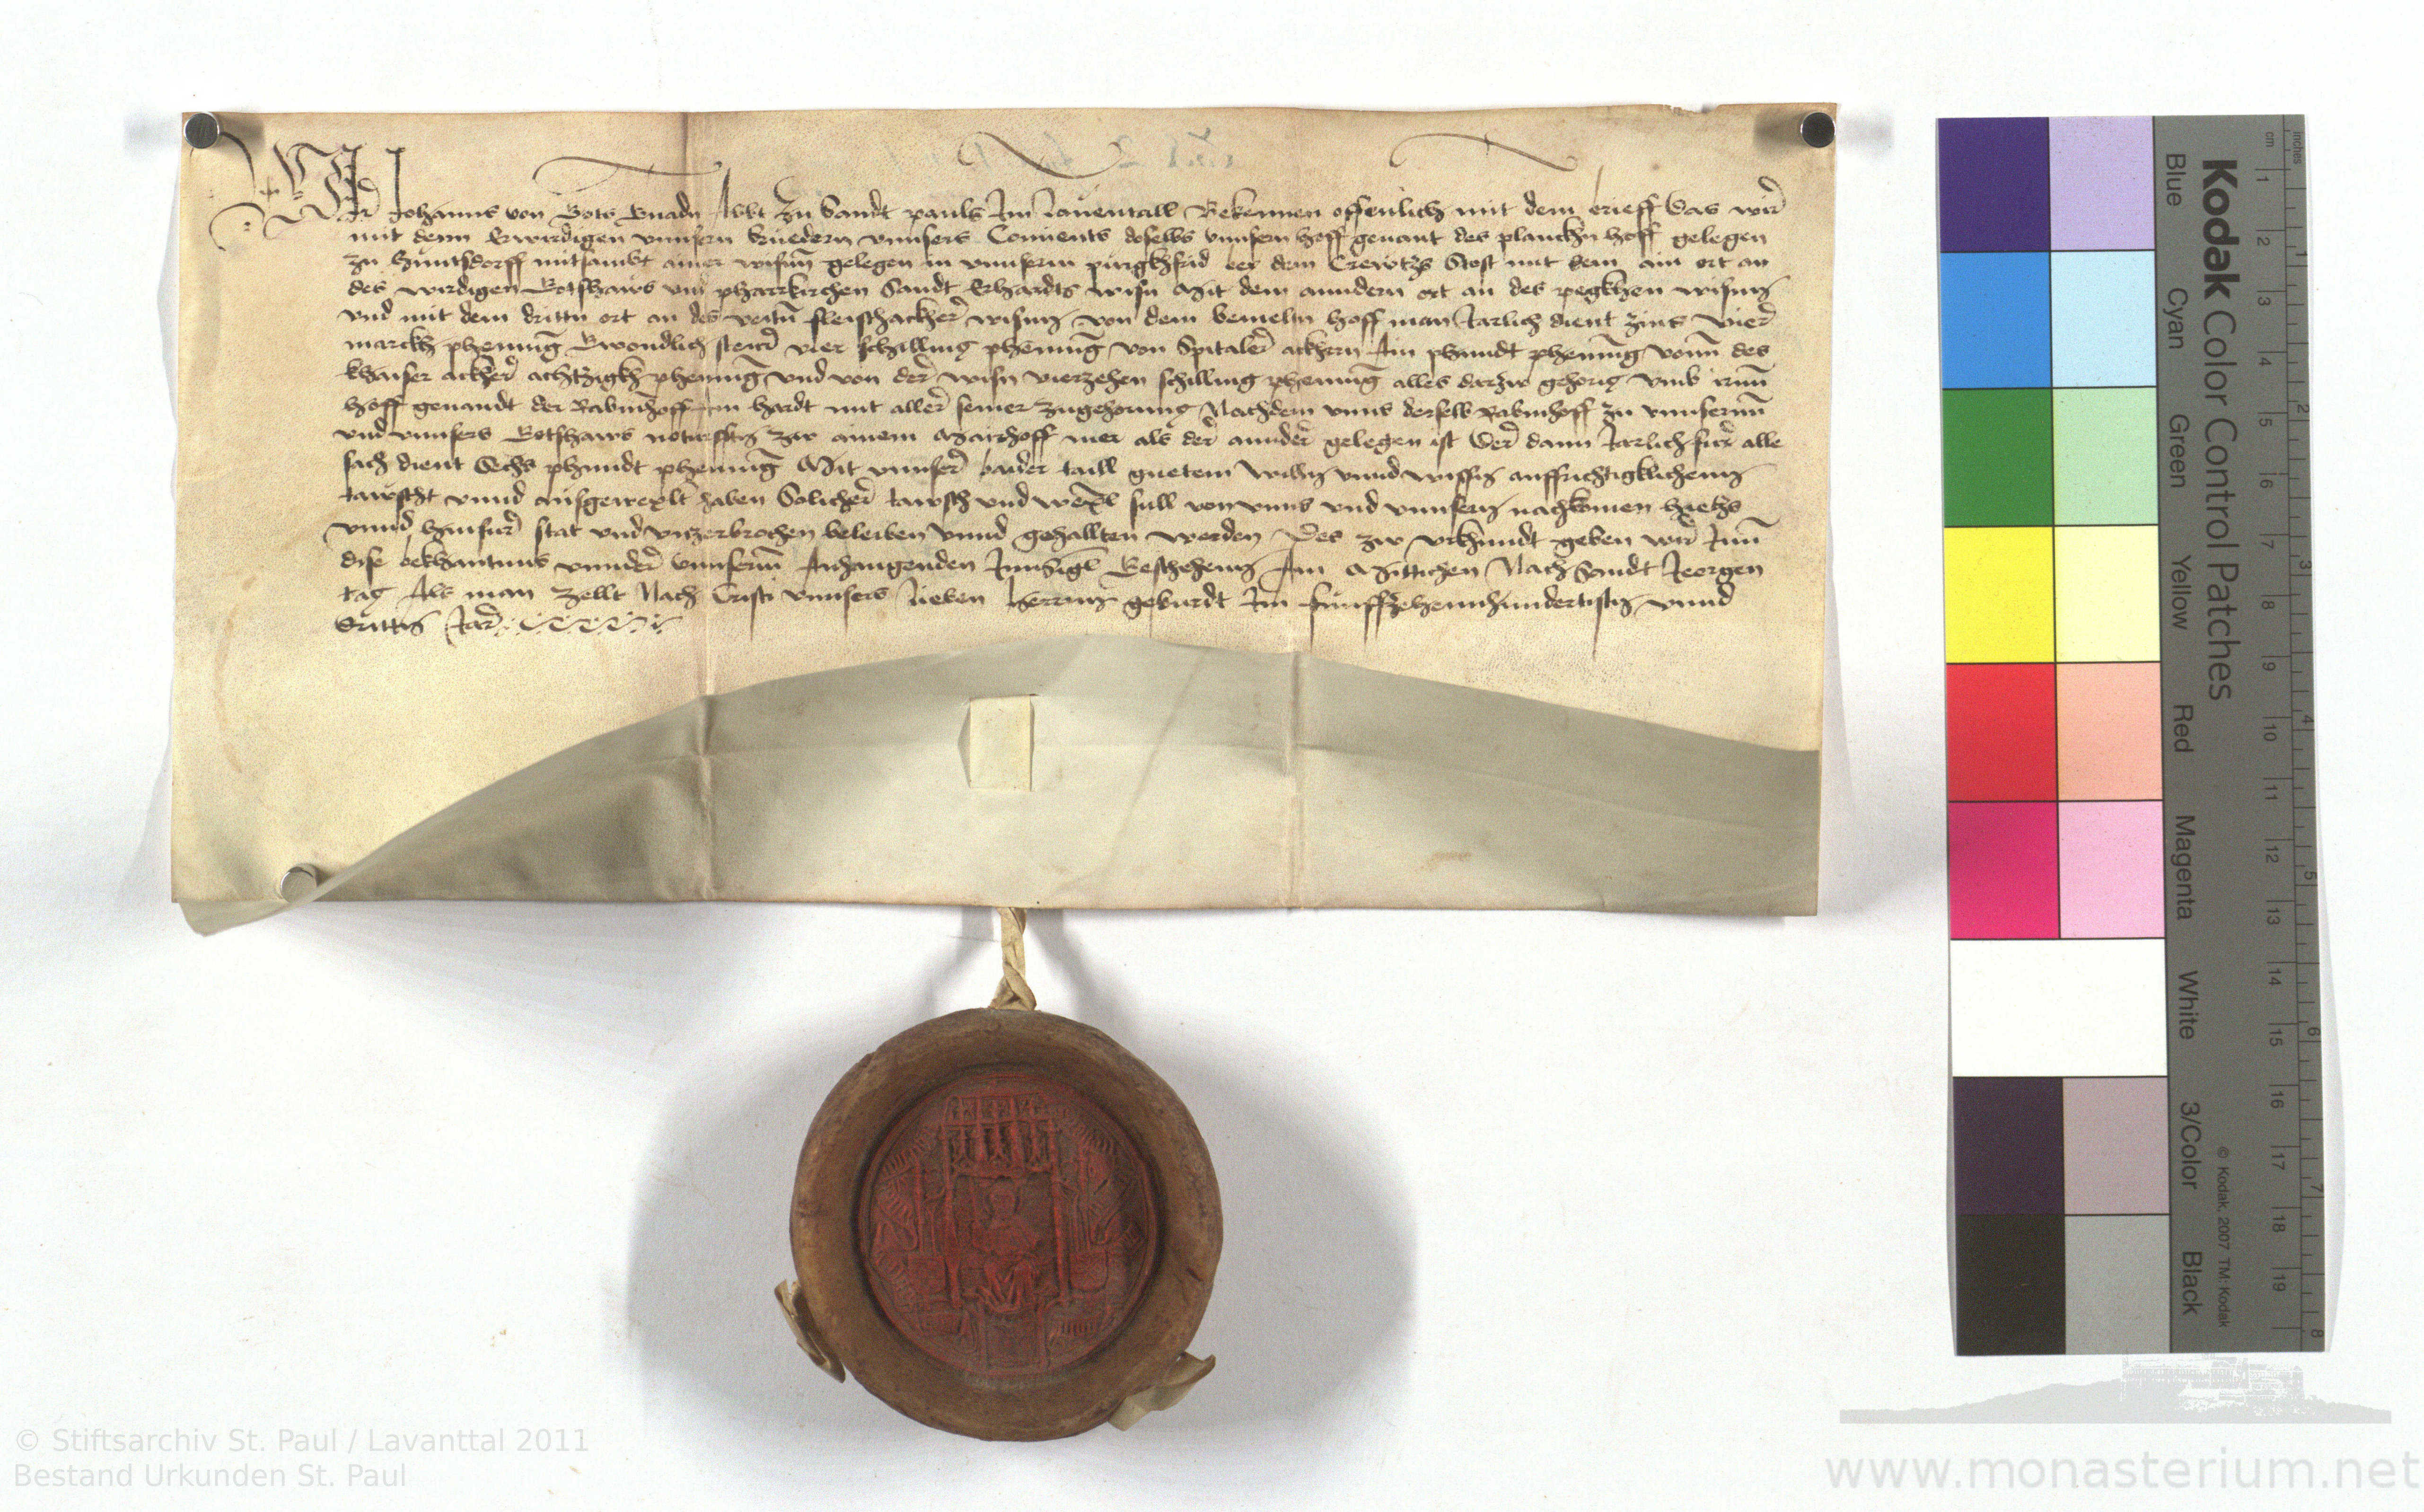 Wir Johanns von Gots Gnadn Abbt zu Sandt pauls Im Lauentall Bekennen offenlich mit dem brieff Das wir
mit denn Erwirdigen vnnsern bruedern vnnsers Conuents doselbs vnnsern hoff genant des planckhn hoff gelegen
zu Huntsdorff mitsambt ainer wisnn gelegen in vnnserm purgkhfrid bey dem Crewtzs Stost mit dem ain ort an
des wirdigen Gotshaws vnd pharrkirchen Sandt Erhardts wisn Mit dem anndern ort an des pegkhen wisnn
vnd mit dem drittn ort an des fleischackher wisnn von dem bemeltn hoff man Jarlich dient zins vier
marckh phenning vier schilling phenning von Spitaler ackhern Ain phundt phenning vonn des
khaiser ackher achtzigkh phenning vnd von der wisn vierzehen schilling phenning alles darzw gehorig vmb
hoff genandt der Rabnhoff Am hardt mit aller seiner zugehorung Nachdem vnns derselb Rabnhoff zu vnnserm
vnd vnnsers Gotshaws zw ainem Mairhoff mer als der annder gelegen ist Der dann Jarlich fur alle
sach dient Sechs phundt phenning Mit vnnser baider taill guetem willn vnnd wissn auffrichtigklichenn
tawscht vnnd ausgewexlt haben Solicher tawsch vnd wexl sull von vnns vnd vnnsern nachkomen hietzs
vnnd hinfur stat vnd vnzerbrochen beleiben vnnd gehallten werden Des zw vrkhundt geben wir Inn
dise bekhantnus vnnder vnnserm Anhangenden Innsigl Beschehenn Am Mittichen Nach Sandt Jeorgen
tag Als man zellt Nach Cristi vnnsers lieben herrnn geburdt Im funffzehennhundertistn vnnd
drittn Jar
Kodak Color Control Patches
Blue Cyan Green Yellow Red Magenta White 3/Color Black
© Kodak, 2007 TM: Kodak
inches
cm
1 2 3 4 5 6 7 8 9 10 11 12 13 14 15 16 17 18 19
1 2 3 4 5 6 7 8
© Stiftsarchiv St. Paul / Lavanttal 2011
Bestand Urkunden St. Paul
www.monasterium.net